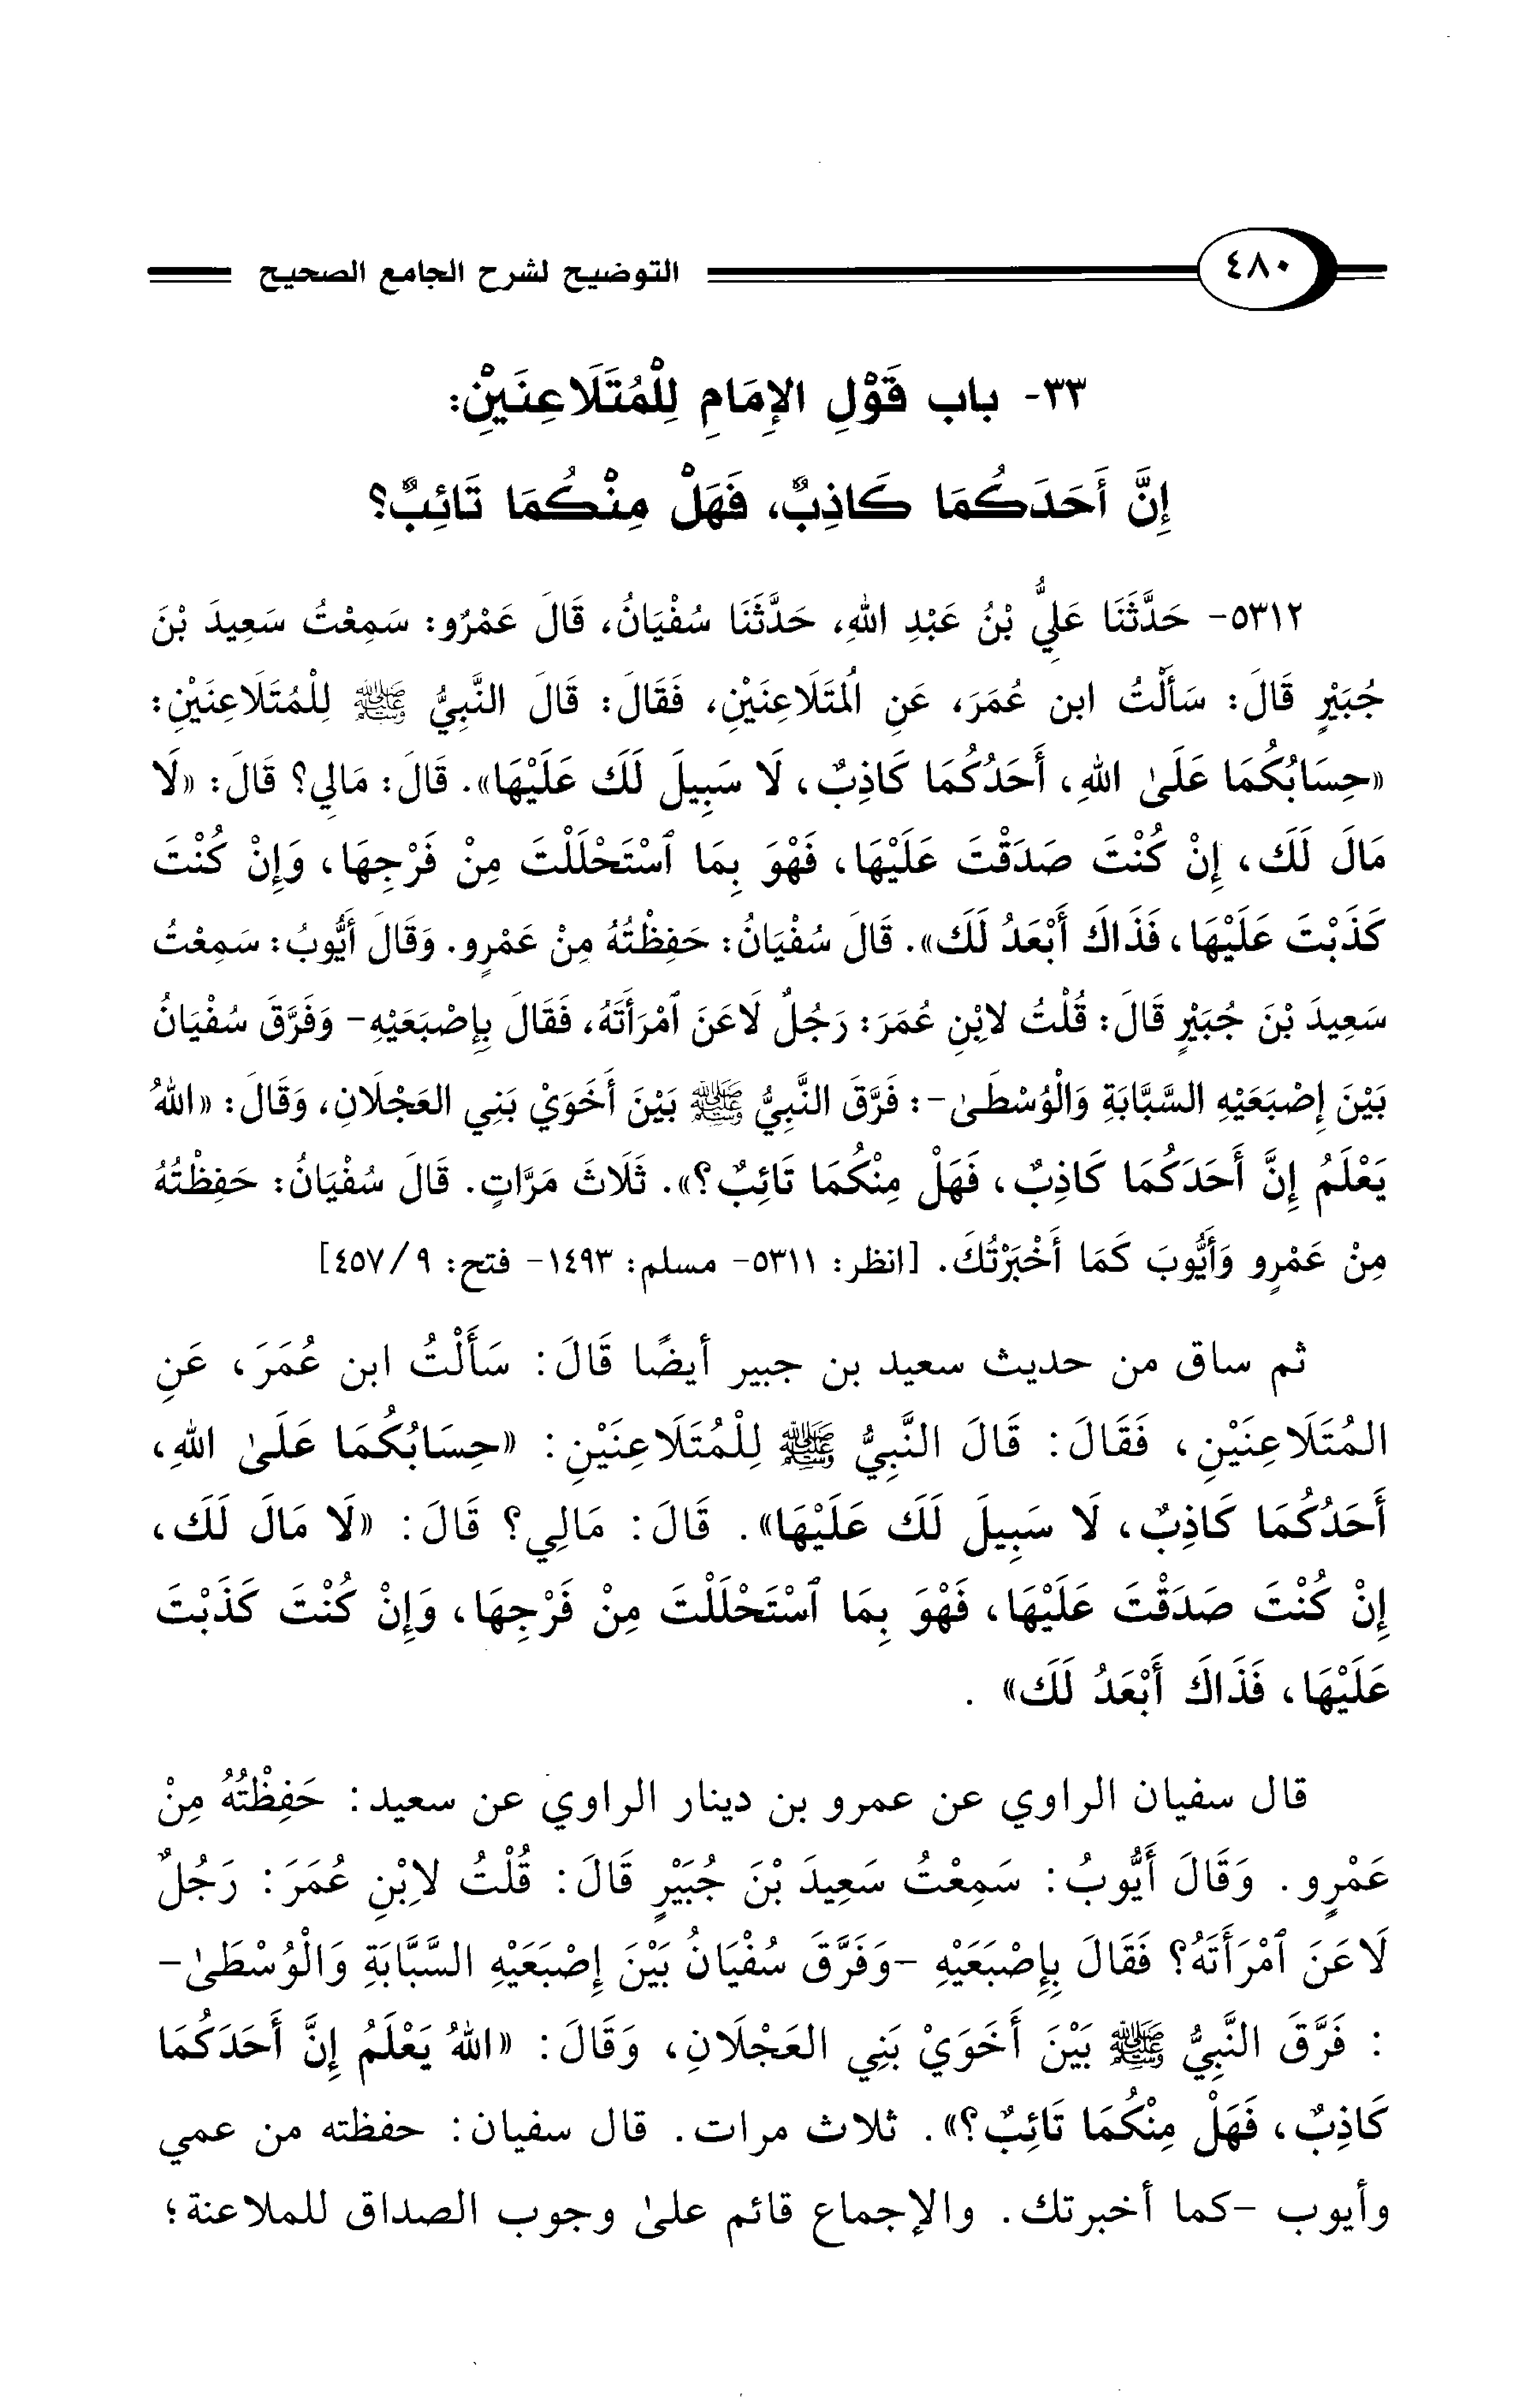 ٤٨٠ التوضيح لشرح الجامع الصحيح
٣٣- باب قَوْلِ الإِمَامِ لِلْمُتَلَاعِنَيْنِ:
إِنَّ أَحَدَكُمَا كَاذِبٌ، فَهَلْ مِنْكُمَا تَائِبٌ؟
٥٣١٢- حَدَّثَنَا عَلِيُّ بْنُ عَبْدِ اللهِ، حَدَّثَنَا سُفْيَانُ، قَالَ عَمْرٌو: سَمِعْتُ سَعِيدَ بْنَ
جُبَيْرٍ قَالَ: سَأَلْتُ ابن عُمَرَ، عَنِ المُتَلَاعِنَيْنِ، فَقَالَ: قَالَ النَّبِيُّ ﷺ لِلْمُتَلَاعِنَيْنِ:
«حِسَابُكُمَا عَلَىٰ اللهِ، أَحَدُكُمَا كَاذِبٌ، لَا سَبِيلَ لَكَ عَلَيْهَا». قَالَ: مَالِي؟ قَالَ: «لَا
مَالَ لَكَ، إِنْ كُنْتَ صَدَقْتَ عَلَيْهَا، فَهْوَ بِمَا ٱسْتَحْلَلْتَ مِنْ فَرْجِهَا، وَإِنْ كُنْتَ
كَذَبْتَ عَلَيْهَا، فَذَاكَ أَبْعَدُ لَكَ». قَالَ سُفْيَانُ: حَفِظْتُهُ مِنْ عَمْرٍو. وَقَالَ أَيُّوبُ: سَمِعْتُ
سَعِيدَ بْنَ جُبَيْرٍ قَالَ: قُلْتُ لابْنِ عُمَرَ: رَجُلٌ لَاعَنَ ٱمْرَأَتَهُ، فَقَالَ بِإِصْبَعَيْهِ- وَفَرَّقَ سُفْيَانُ
بَيْنَ إِصْبَعَيْهِ السَّبَّابَةِ وَالْوُسْطَىٰ-: فَرَّقَ النَّبِيُّ ﷺ بَيْنَ أَخَوَيْ بَنِي العَجْلَانِ، وَقَالَ: «اللهُ
يَعْلَمُ إِنَّ أَحَدَكُمَا كَاذِبٌ، فَهَلْ مِنْكُمَا تَائِبٌ؟». ثَلَاثَ مَرَّاتٍ. قَالَ سُفْيَانُ: حَفِظْتُهُ
مِنْ عَمْرٍو وَأَيُّوبَ كَمَا أَخْبَرْتُكَ. [انظر: ٥٣١١- مسلم: ١٤٩٣- فتح: ٩/ ٤٥٧]
ثم ساق من حديث سعيد بن جبير أيضًا قَالَ: سَأَلْتُ ابن عُمَرَ، عَنِ
المُتَلَاعِنَيْنِ، فَقَالَ: قَالَ النَّبِيُّ ﷺ لِلْمُتَلَاعِنَيْنِ: «حِسَابُكُمَا عَلَىٰ اللهِ،
أَحَدُكُمَا كَاذِبٌ، لَا سَبِيلَ لَكَ عَلَيْهَا». قَالَ: مَالِي؟ قَالَ: «لَا مَالَ لَكَ،
إِنْ كُنْتَ صَدَقْتَ عَلَيْهَا، فَهْوَ بِمَا ٱسْتَحْلَلْتَ مِنْ فَرْجِهَا، وَإِنْ كُنْتَ كَذَبْتَ
عَلَيْهَا، فَذَاكَ أَبْعَدُ لَكَ» .
قال سفيان الراوي عن عمرو بن دينار الراوي عن سعيد: حَفِظْتُهُ مِنْ
عَمْرٍو. وَقَالَ أَيُّوبُ: سَمِعْتُ سَعِيدَ بْنَ جُبَيْرٍ قَالَ: قُلْتُ لاِبْنِ عُمَرَ: رَجُلٌ
لَاعَنَ ٱمْرَأَتَهُ؟ فَقَالَ بِإِصْبَعَيْهِ -وَفَرَّقَ سُفْيَانُ بَيْنَ إِصْبَعَيْهِ السَّبَّابَةِ وَالْوُسْطَىٰ-
: فَرَّقَ النَّبِيُّ ﷺ بَيْنَ أَخَوَيْ بَنِي العَجْلَانِ، وَقَالَ: «اللهُ يَعْلَمُ إِنَّ أَحَدَكُمَا
كَاذِبٌ، فَهَلْ مِنْكُمَا تَائِبٌ؟». ثلاث مرات. قال سفيان: حفظته من عمي
وأيوب -كما أخبرتك. والإجماع قائم علىٰ وجوب الصداق للملاعنة؛